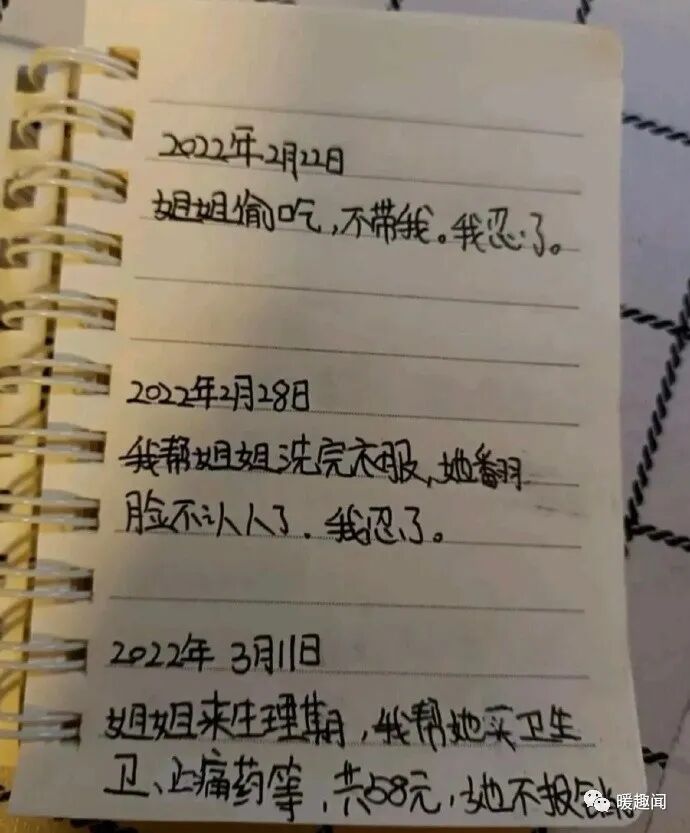 2022年2月22日
姐姐偷吃,不带我。我忍了。
2022年2月28日
我帮姐姐洗完衣服,她翻
脸不认人了.我忍了。
2022年3月11日
姐姐来生理期,我帮她买卫生
卫、止痛药等,共58元,她不报
暖趣闻